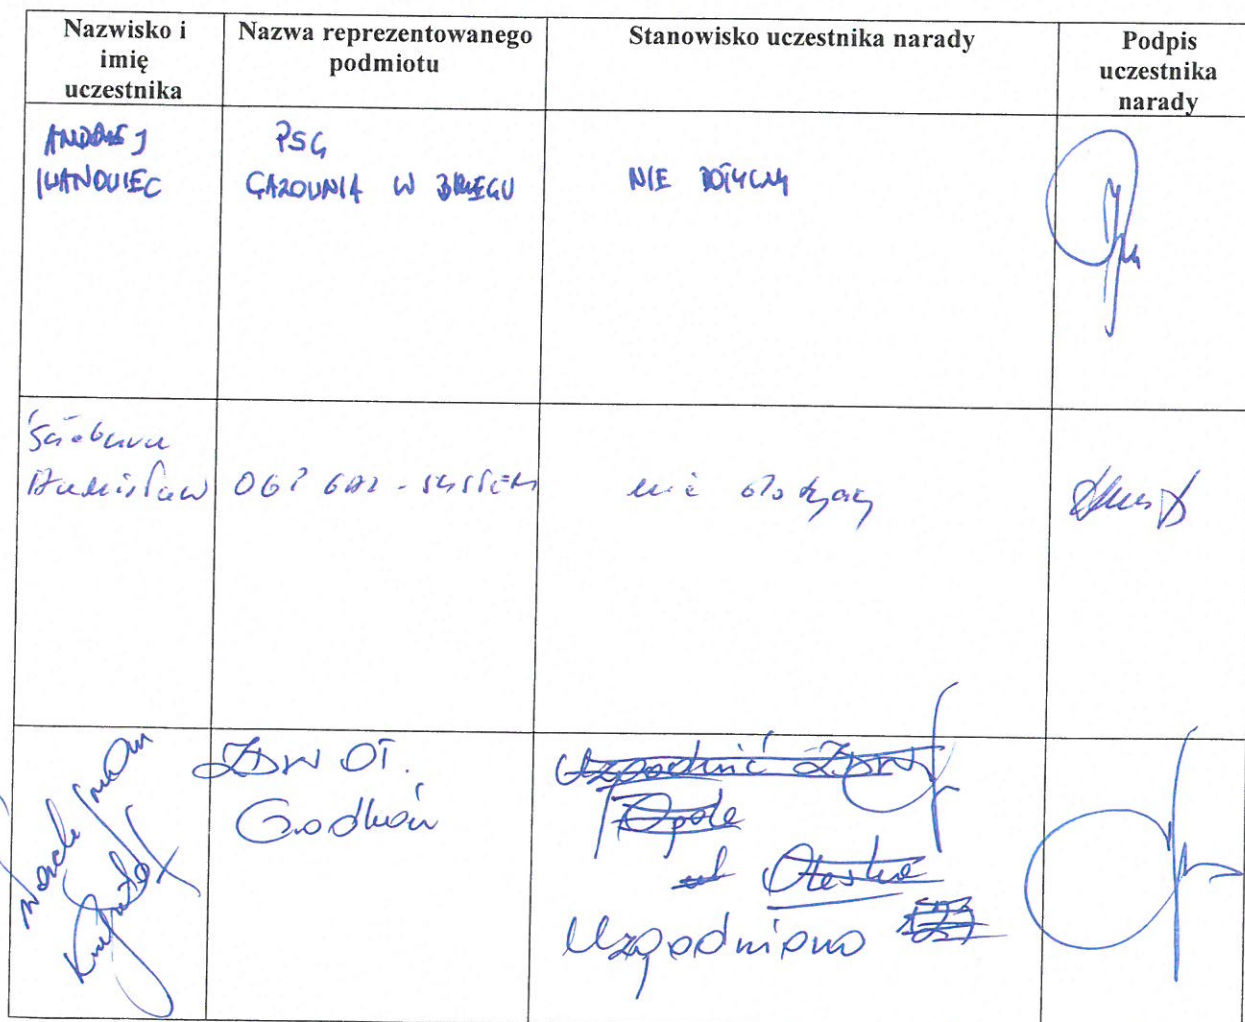 Nazwisko i
imię
uczestnika
Nazwa reprezentowanego
podmiotu
Stanowisko uczestnika narady
Podpis
uczestnika
narady
ANDRZEJ
IWANOWIEC
PSG
GAZOWNIA W BRZEGU
NIE DOTYCZY
Stanisław
OGP GAZ-SYSTEM
nie dotyczy
ZDW OT.
Grodków
Uzgodnić ZDW
Opole
ul Oleska
Uzgodniono